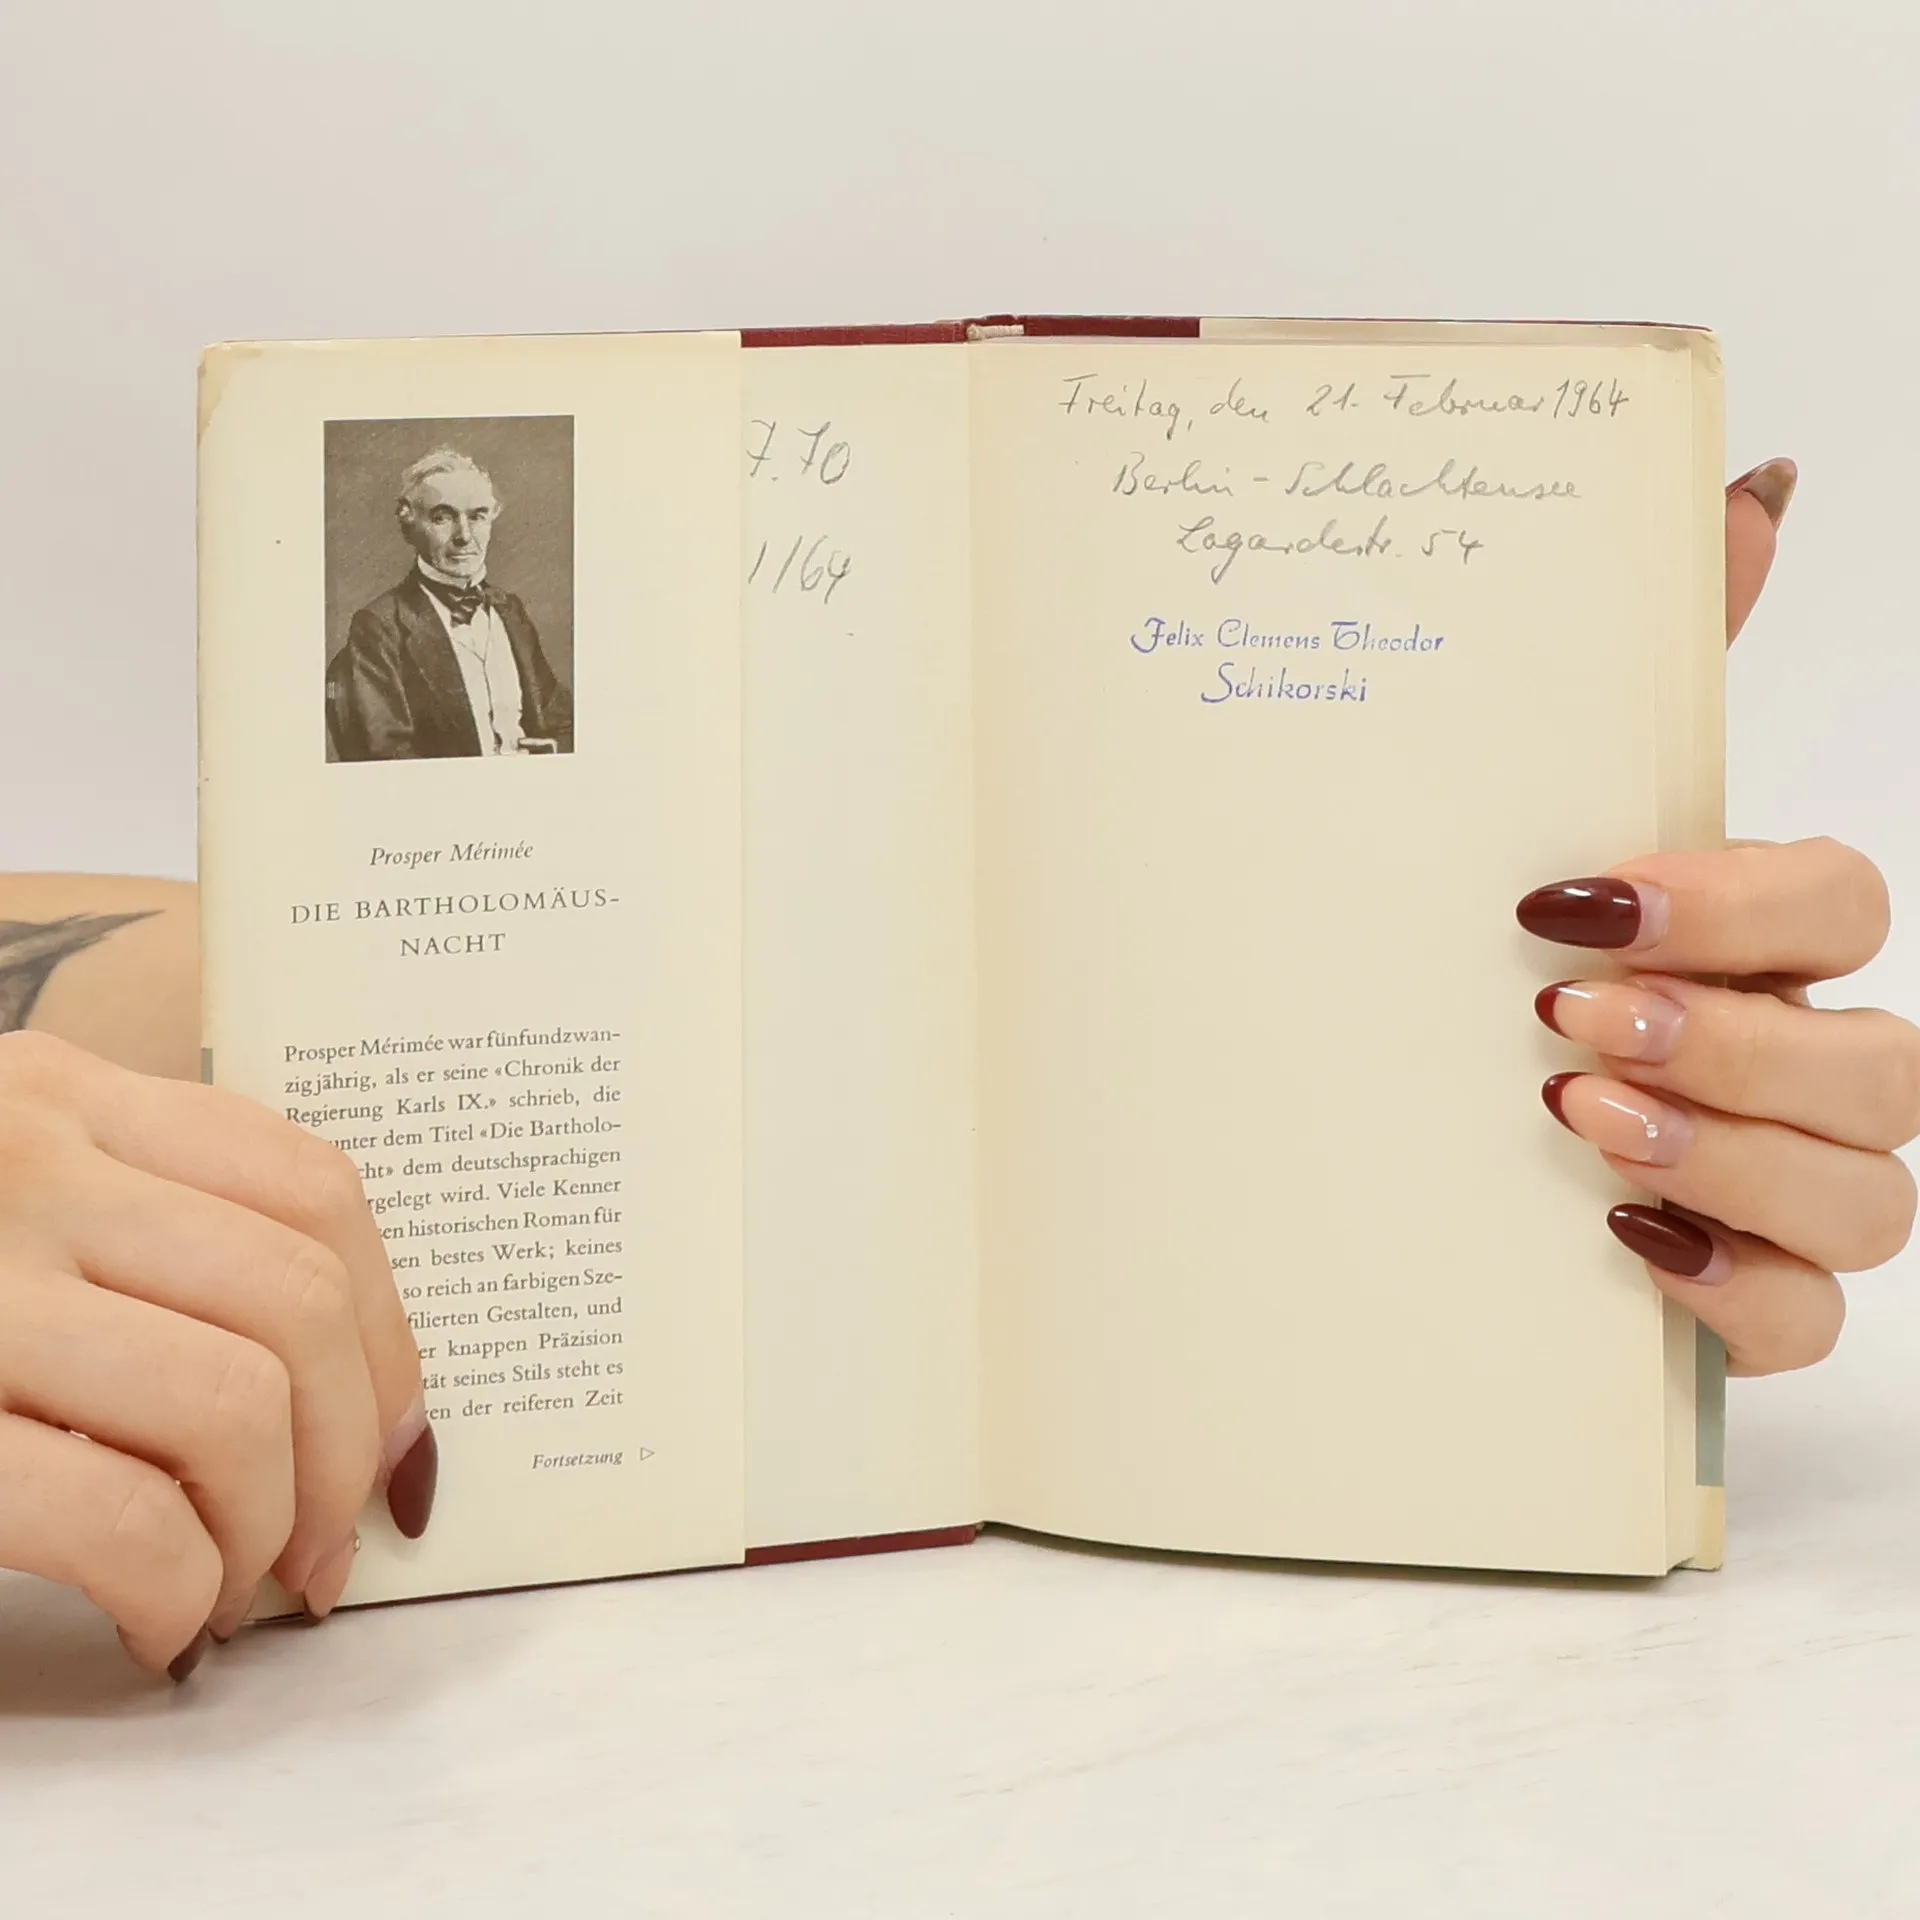 Prosper Mérimée
DIE BARTHOLOMÄUS-
NACHT
Prosper Mérimée war fünfundzwan-
zigjährig, als er seine «Chronik der
Regierung Karls IX.» schrieb, die
unter dem Titel «Die Bartholo-
cht» dem deutschsprachigen
rgelegt wird. Viele Kenner
en historischen Roman für
sen bestes Werk; keines
so reich an farbigen Sze-
filierten Gestalten, und
er knappen Präzision
tät seines Stils steht es
en der reiferen Zeit
Fortsetzung
7.70
1/64
Freitag, den 21. Februar 1964
Berlin - Schlachtensee
Lagardestr. 54
Felix Clemens Theodor
Schikorski